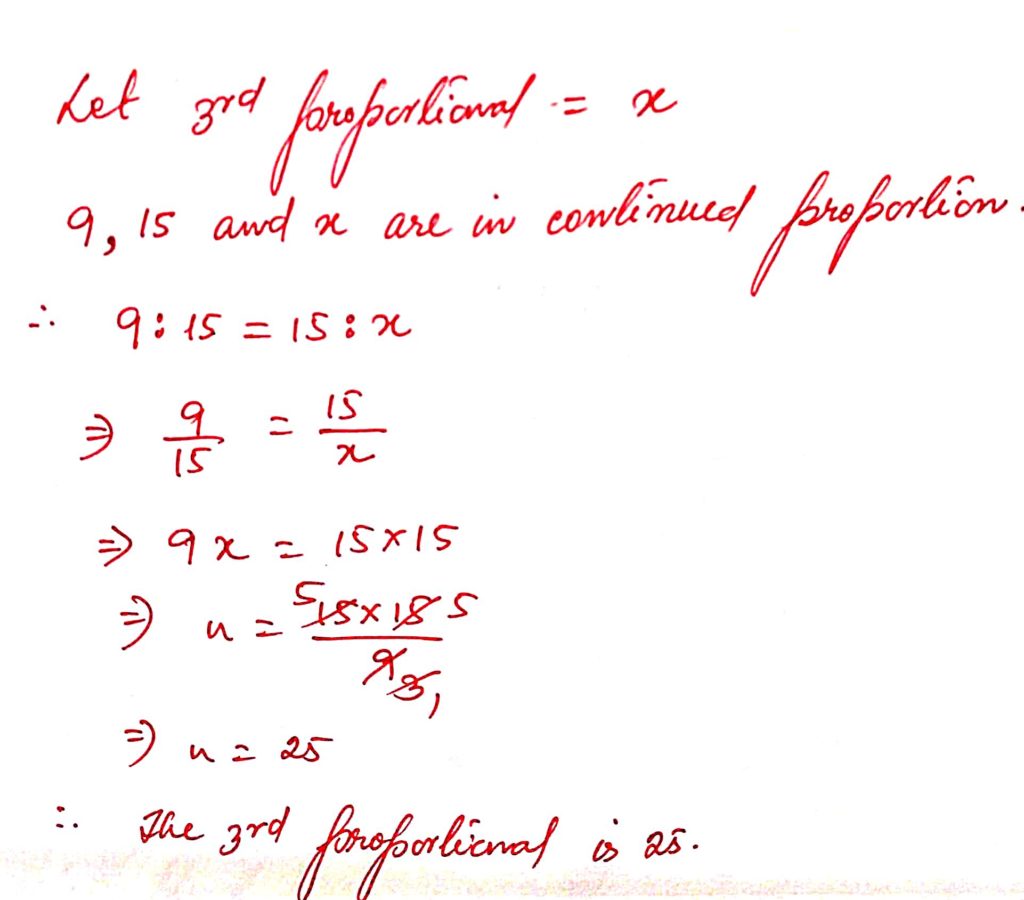 Let 3rd proportional = x
9, 15 and x are in continued proportion.
∴ 9 : 15 = 15 : x
⇒ 9/15 = 15/x
⇒ 9x = 15×15
⇒ x = 5 15×15 5 / 9 3 1
⇒ x = 25
∴ The 3rd proportional is 25.